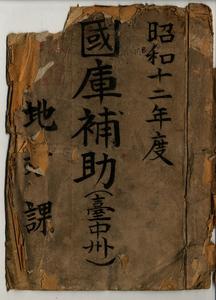 昭和十二年度
國庫補助(臺中州)
地 課